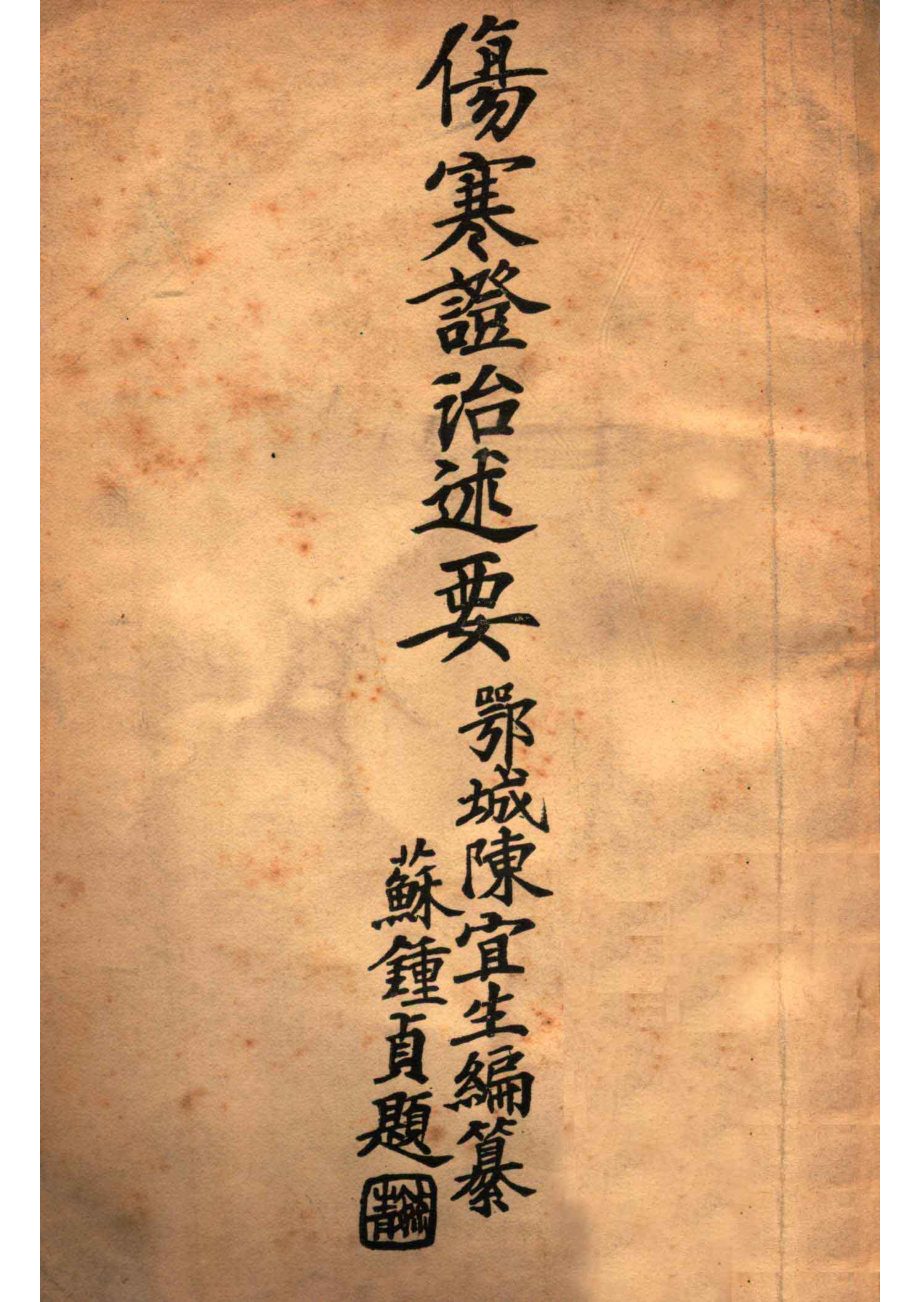 傷寒證治述要
鄂城陳宜生編纂
蘇鍾貞題